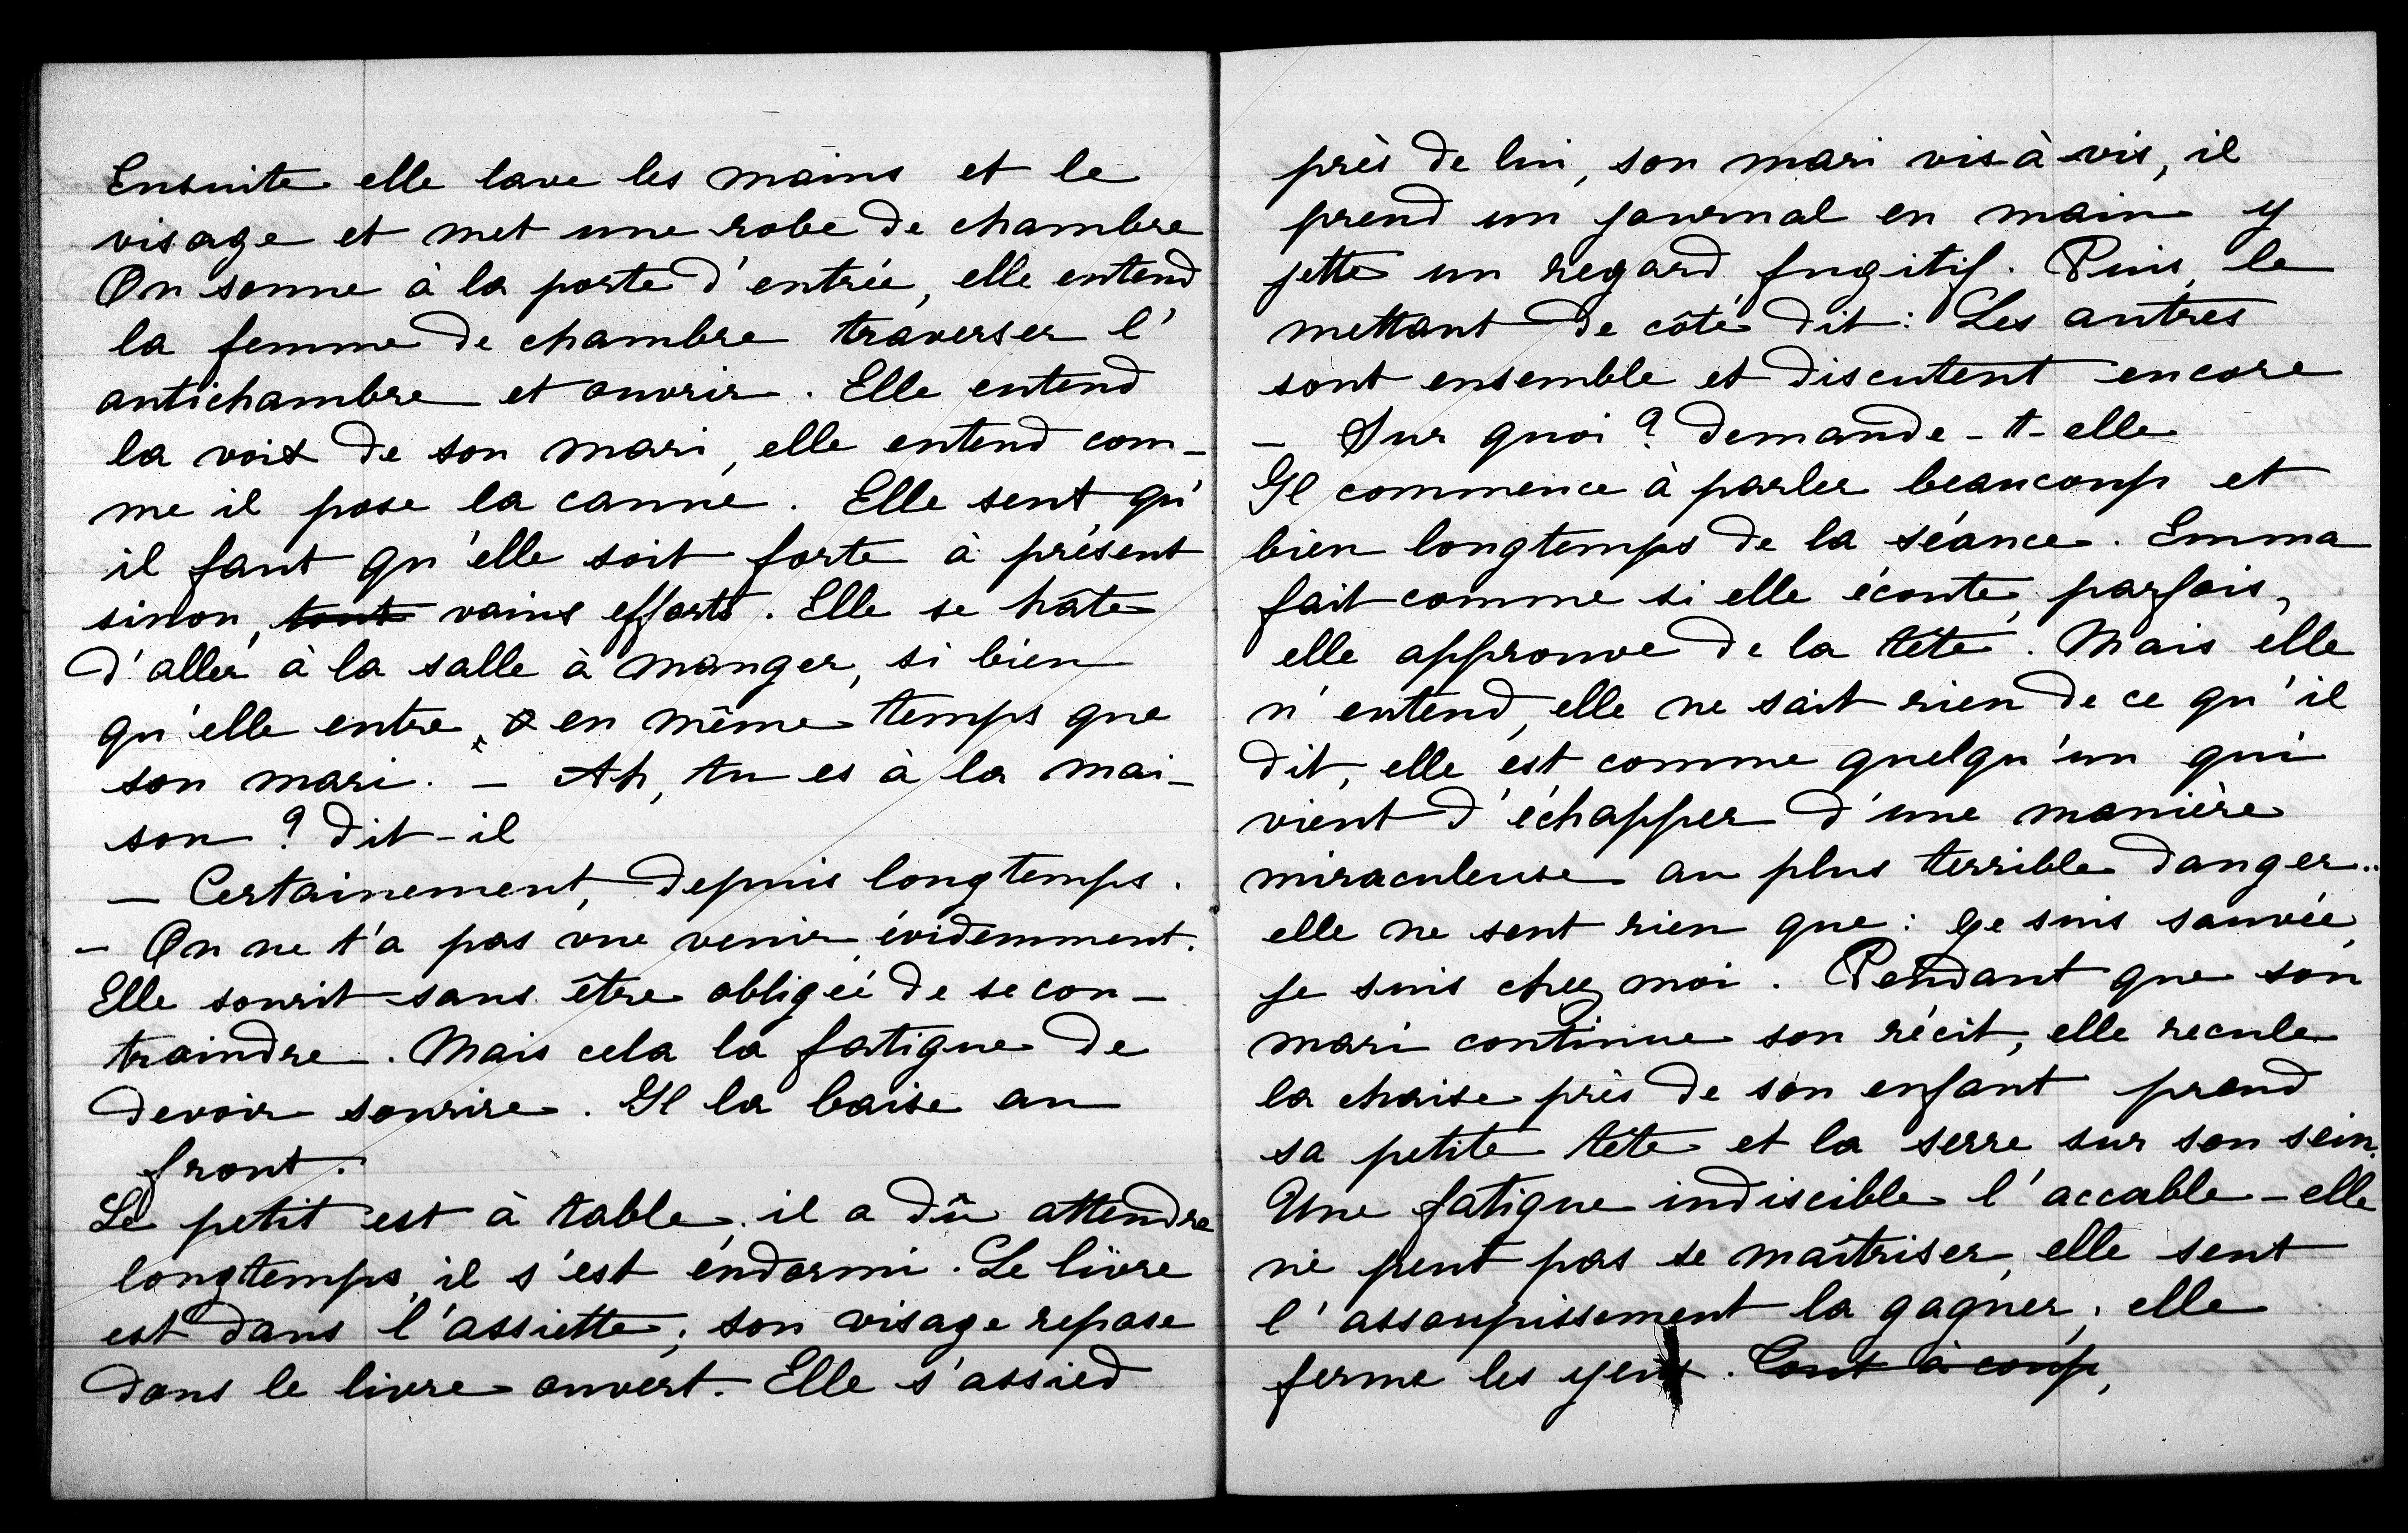 Ensuite elle lave les mains et le
visage et met une robe de chambre
On sonne à la porte d'entrée, elle entend
la femme de chambre traverser l'
antichambre et ouvrir. Elle entend
la voix de son mari, elle entend com-
me il pose la canne. Elle sent qu'
il faut qu'elle soit forte à présent
sinon, tout vains efforts. Elle se hâte
d'aller à la salle à manger, si bien
qu'elle entre, en même temps que
son mari. - Ah, tu es à la mai-
son ? dit-il
- Certainement, depuis longtemps.
- On ne t'a pas vue venir évidemment.
Elle sourit sans être obligée de se con-
traindre. Mais cela la fatigue de
devoir sourire. Il la baise au
front.
Le petit est à table, il a dû attendre
longtemps, il s'est endormi. Le livre
est dans l'assiette; son visage repose
dans le livre ouvert. Elle s'assied
près de lui, son mari vis-à-vis, il
prend un journal en main y
jette un regard fugitif. Puis, le
mettant de côté dit: Les autres
sont ensemble et discutent encore
- Sur quoi ? demande-t-elle
Il commence à parler beaucoup et
bien longtemps de la séance. Emma
fait comme si elle écoute, parfois,
elle approuve de la tête. Mais elle
n'entend, elle ne sait rien de ce qu'il
dit, elle est comme quelqu'un qui
vient d'échapper d'une manière
miraculeuse au plus terrible danger..
elle ne sent rien que: Je suis sauvée,
je suis chez moi. Pendant que son
mari continue son récit, elle recule
la chaise près de son enfant prend
sa petite tête et la serre sur son sein.
Une fatigue indiscible l'accable - elle
ne peut pas se maîtriser, elle sent
l'assoupissement la gagner; elle
ferme les yeux. Tout à coup,